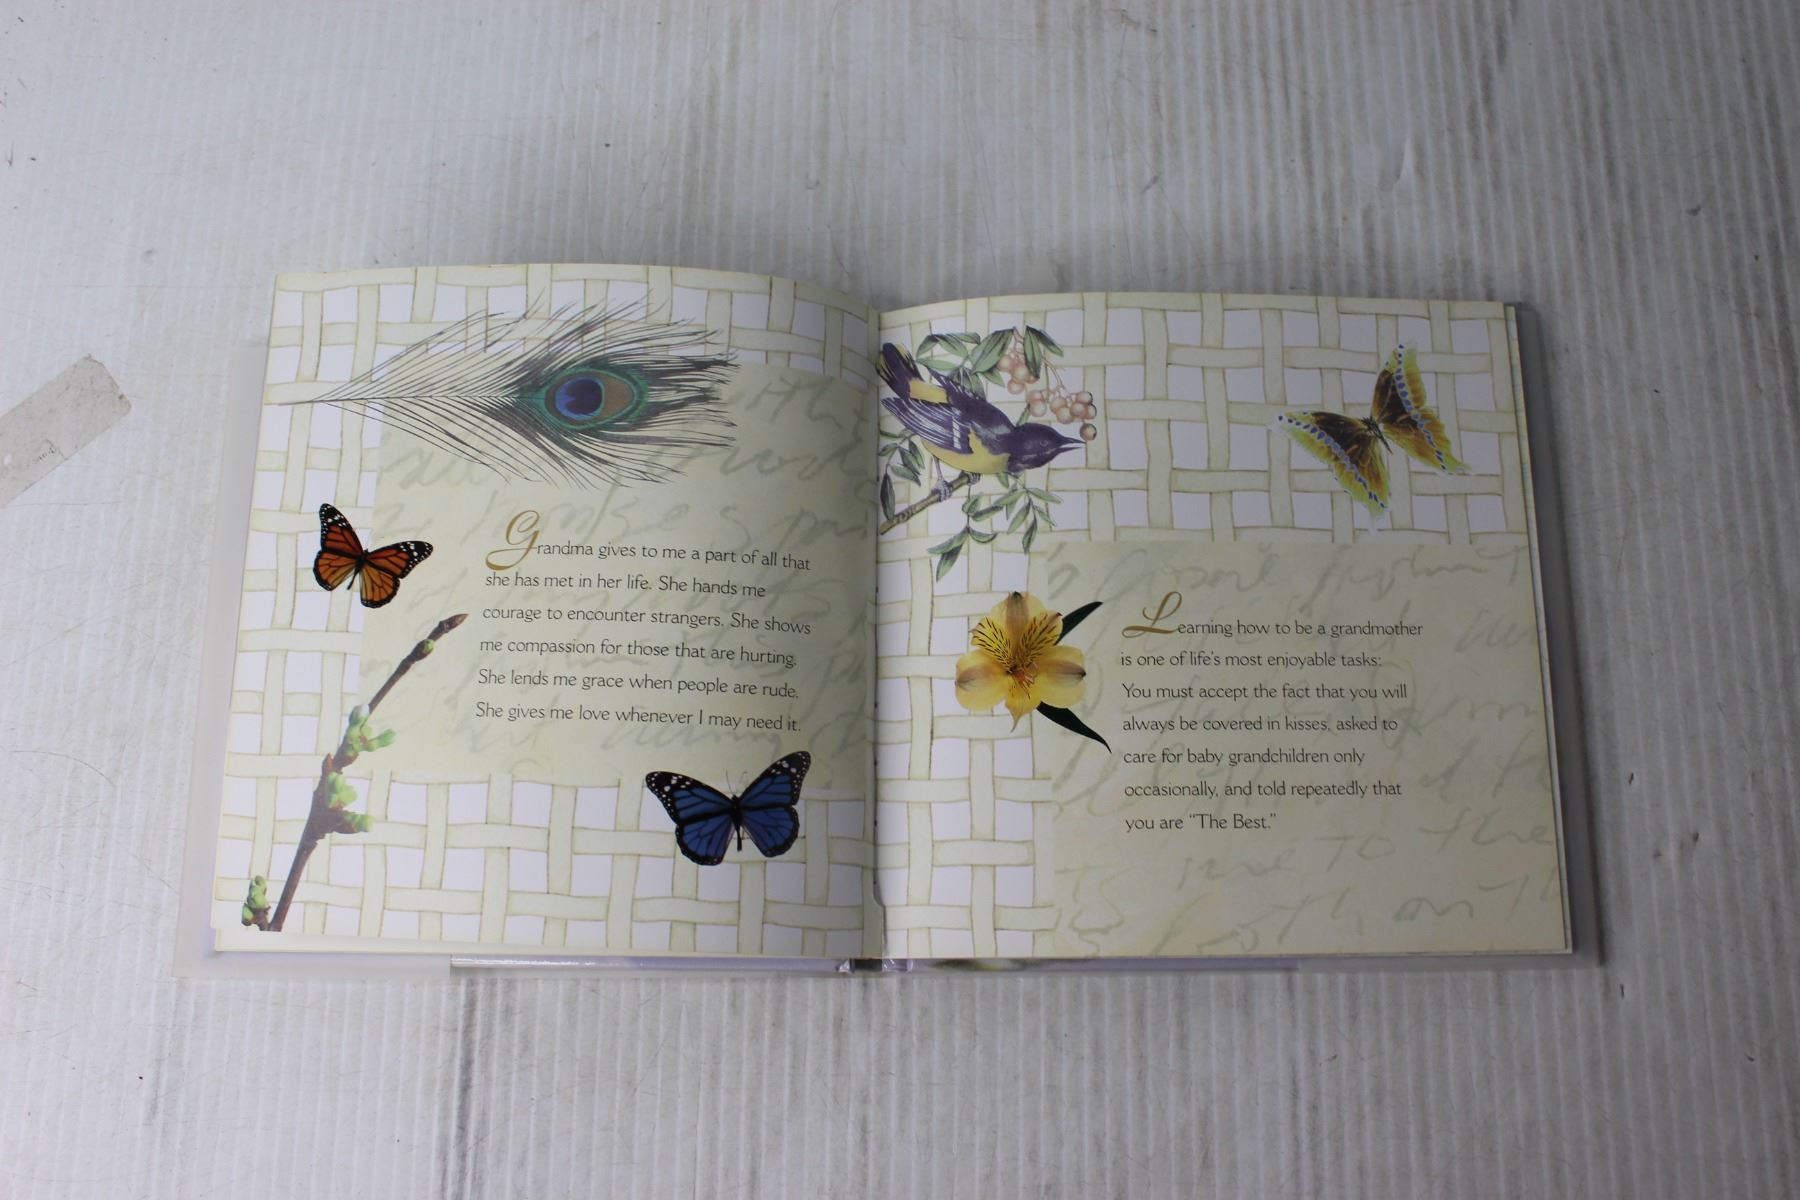 Grandma gives to me a part of all that
she has met in her life. She hands me
courage to encounter strangers. She shows
me compassion for those that are hurting.
She lends me grace when people are rude.
She gives me love whenever I may need it.
Learning how to be a grandmother
is one of life's most enjoyable tasks:
You must accept the fact that you will
always be covered in kisses, asked to
care for baby grandchildren only
occasionally, and told repeatedly that
you are "The Best."